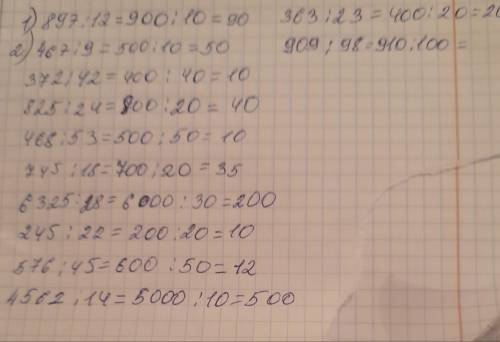 1) 897:12=900:10=90 363:23=400:20=20
2) 467:9=500:10=50 909:98=910:100=
372:42=400:40=10
825:24=800:20=40
468:53=500:50=10
745:18=700:20=35
6325:28=6000:30=200
245:22=200:20=10
576:45=600:50=12
4562:14=5000:10=500